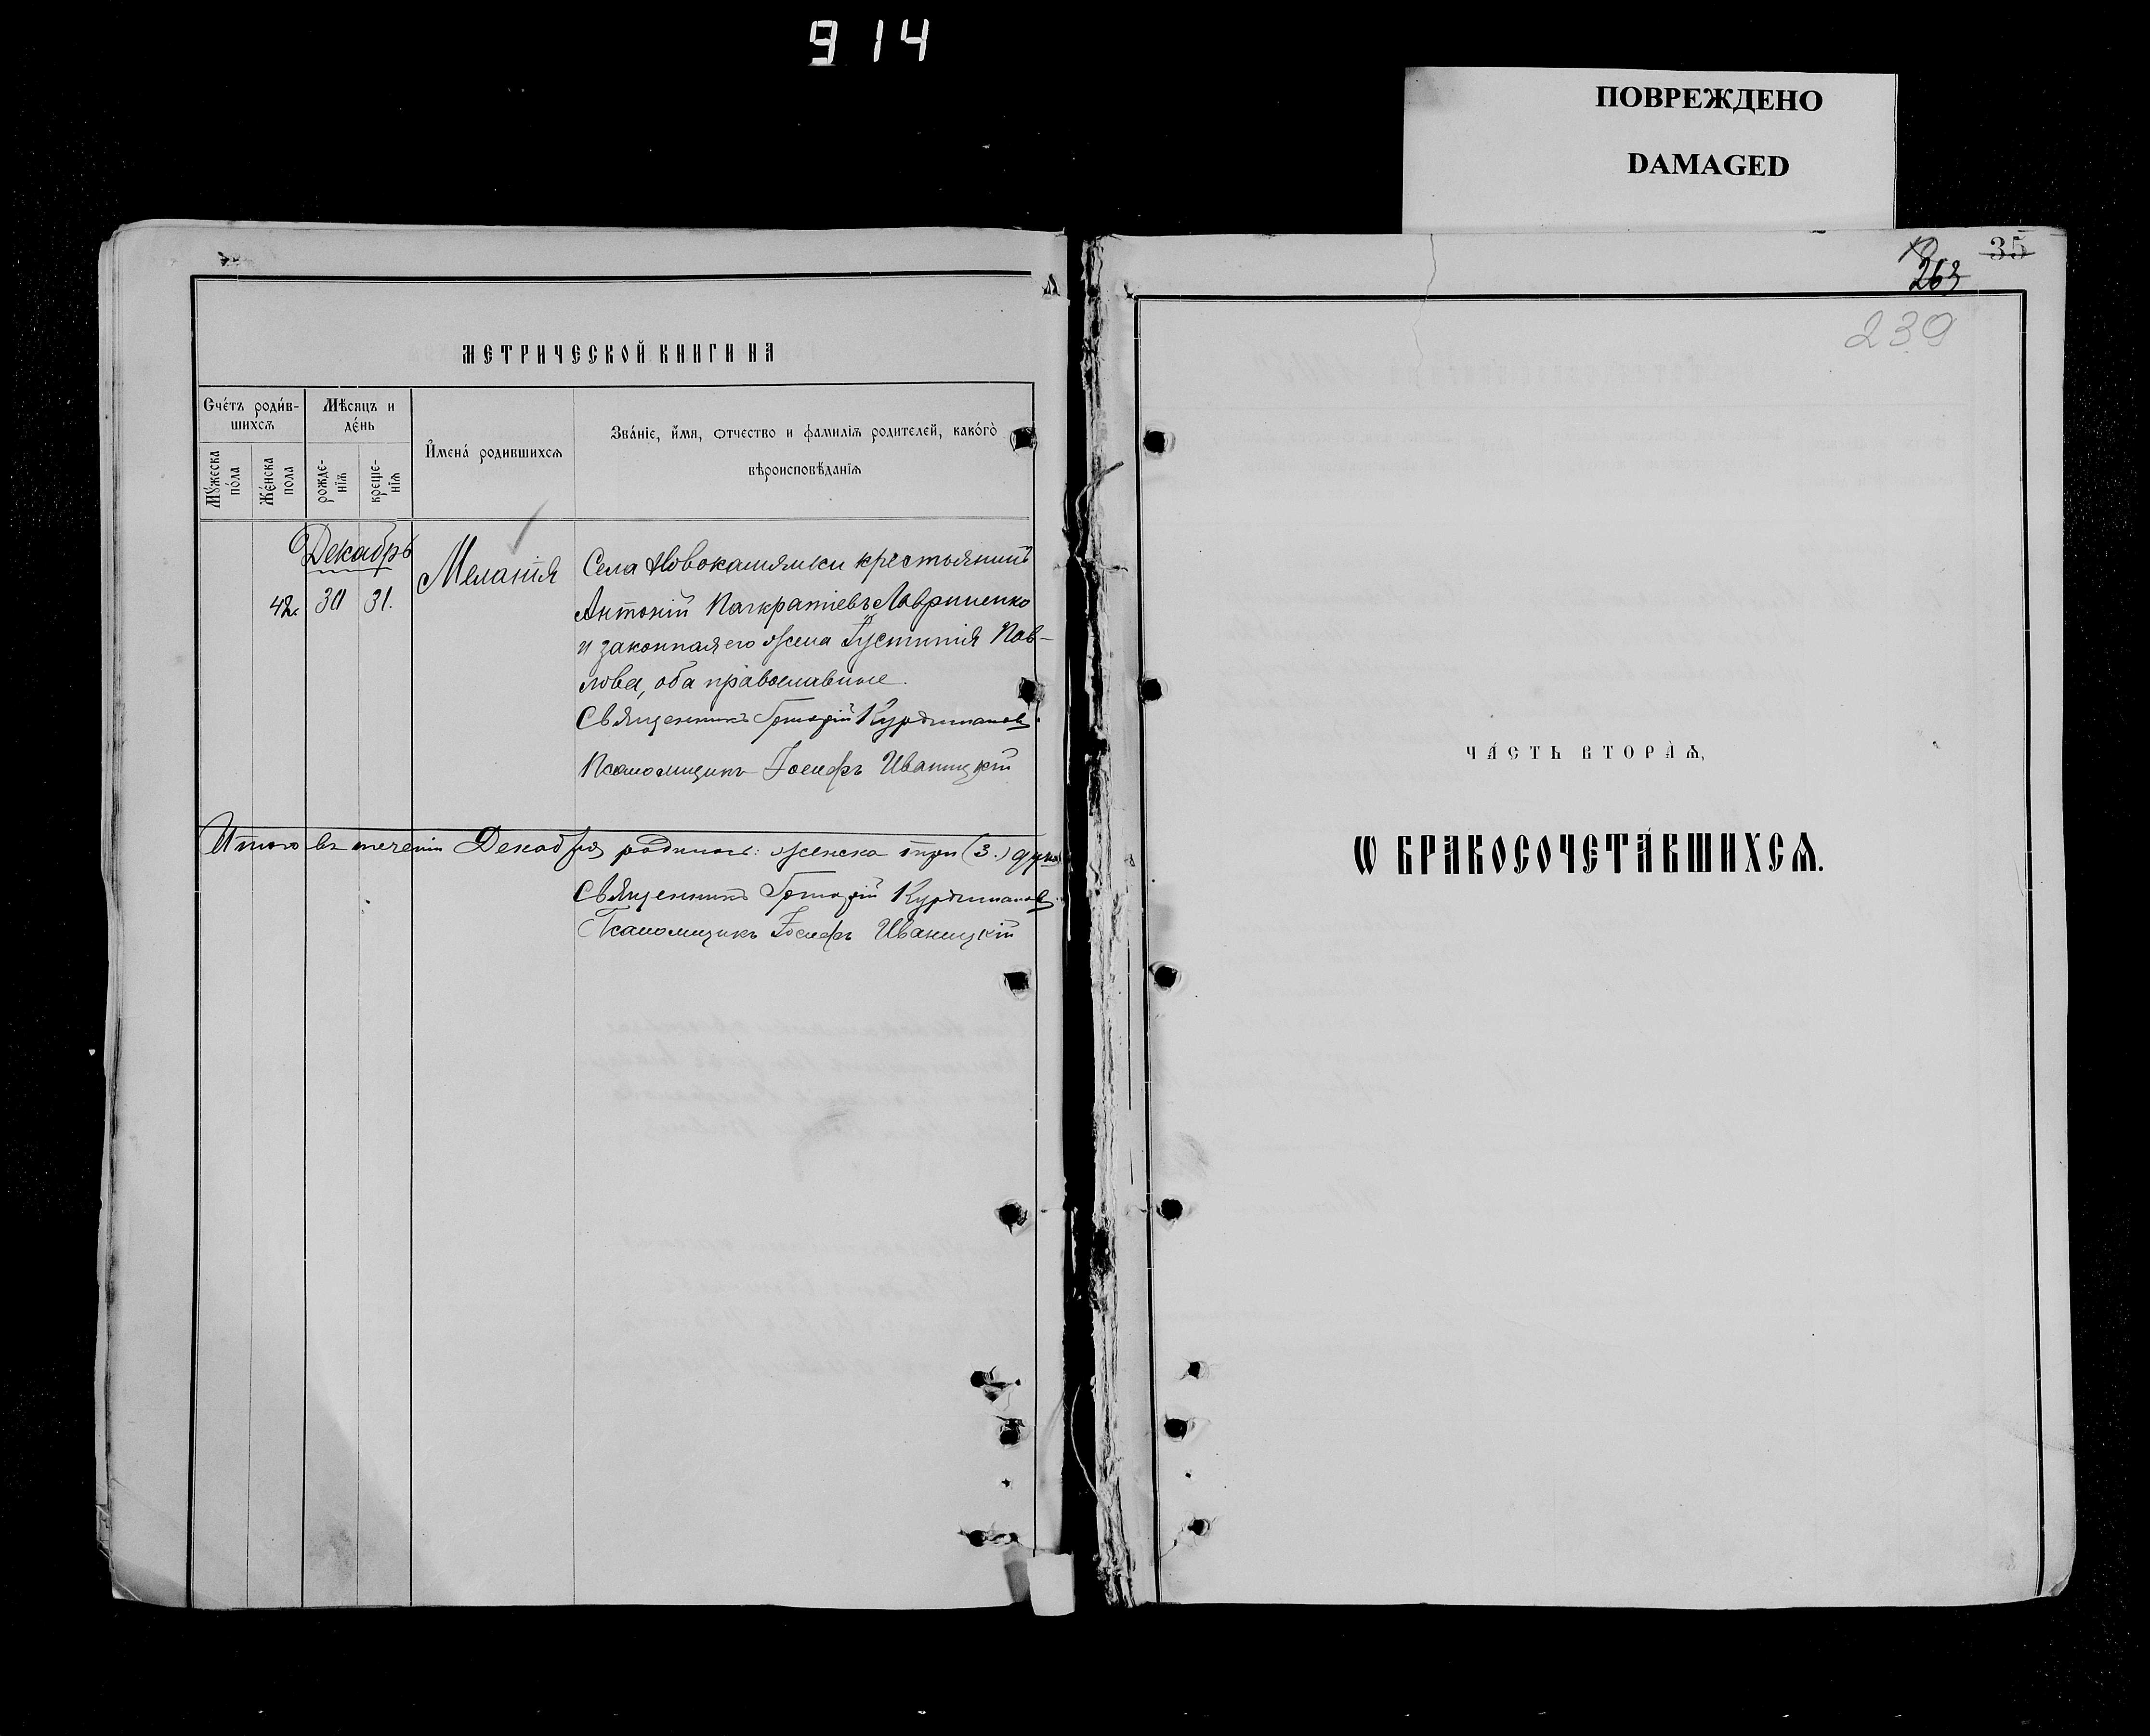 914
ПОВРЕЖДЕНО
DAMAGED
МЕТРИЧЕСКОЙ КНИГИ НА
Счéтъ роди́в-
шихсѧ
Мѣ́сяцъ и
дéнь
И҆менá родившихсѧ
Звáнїе, и҆́мѧ, ѻтчество и фамилїѧ родителей, какóгѡ
вѣроисповѣ́данїѧ
Мꙋ́жеска
пóла
Жéнска
пола
рожде-
нїѧ
креще-
нїѧ
Декабрь
42. 30 31.
Меланія
Села Новокаменки крестьянинъ
Антоній Панкратіевъ Лавриненко
и законная его жена Іустинія Пав-
лова, оба православные.
Священникъ Григорій Курдимановъ.
Псаломщикъ Іосифъ Иваницкій
Итого въ теченіи Декабря родилось: женска три (3.) душъ
Священникъ Григорій Курдимановъ.
Псаломщикъ Іосифъ Иваницкій
35
263
239
ЧÁСТЬ ВТОРÁѦ,
Ѡ БРАКОСОЧЕТÁВШИХСѦ.